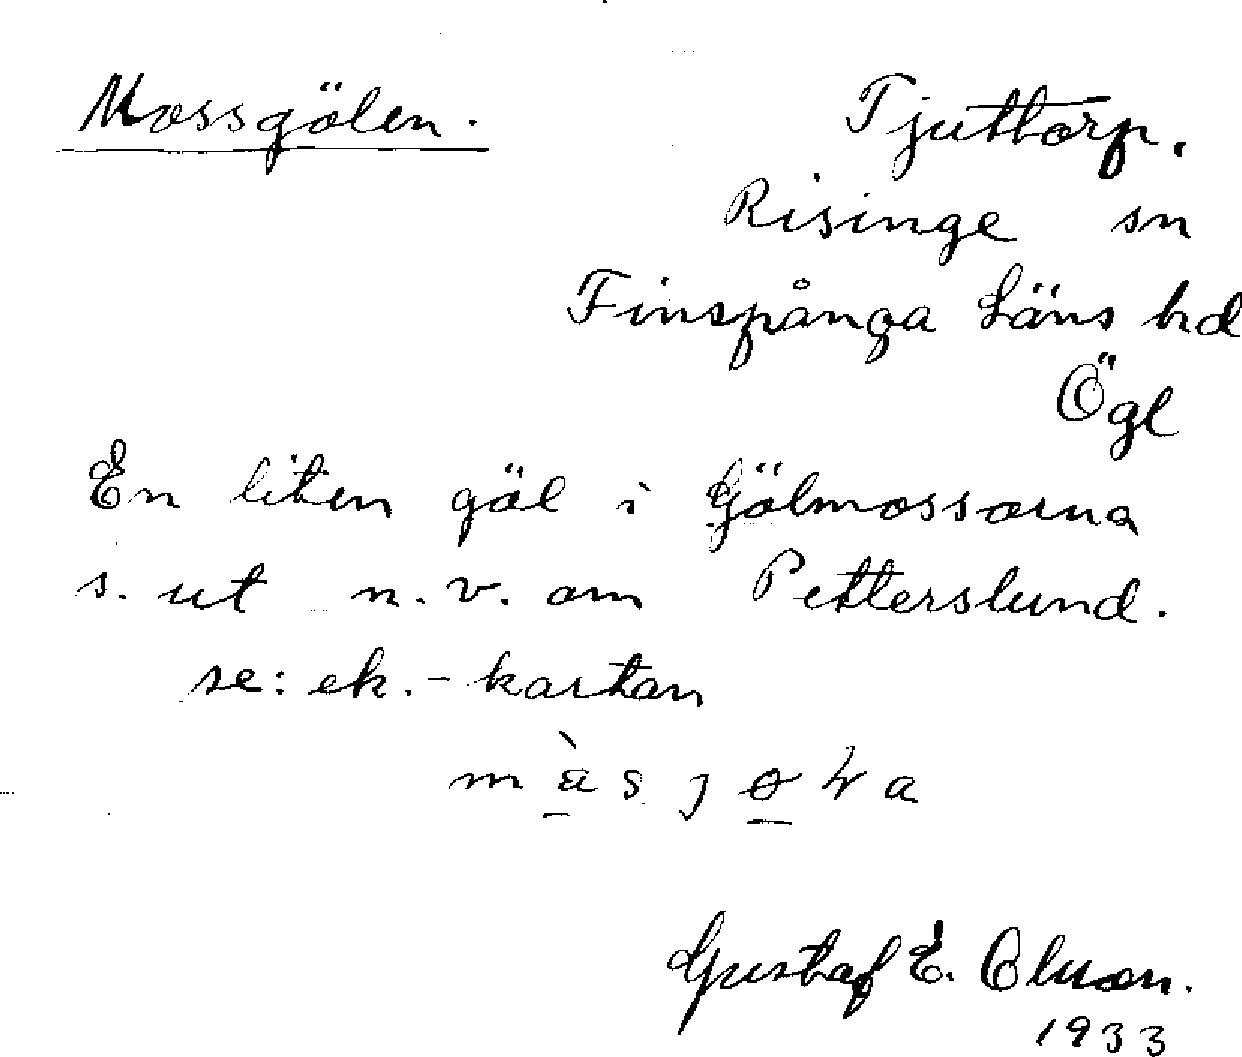 Mossgölen.
Tjuttorp.
Risinge sn
Finspånga Läns hd
Ögl
En liten göl i Gölmossarna
s. ut n.v. om Petterslund.
se: ek.-kartan
Gustaf E. Olsson.
1933